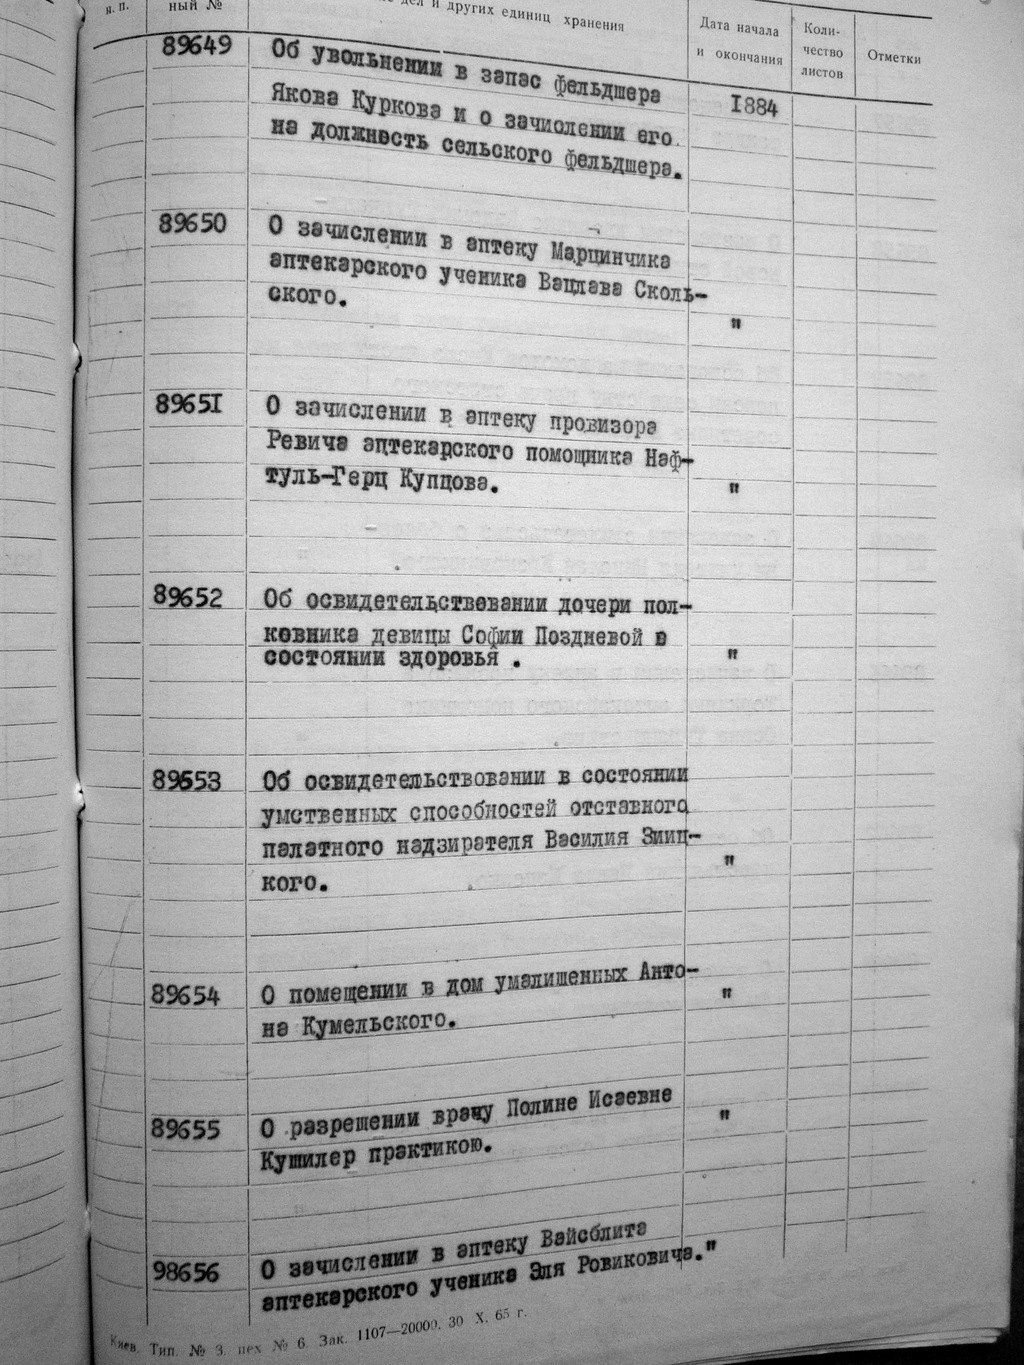 н. п.
ный №
дел и других единиц хранения
Дата начала
и окончания
Коли-
чество
листов
Отметки
89649
Об увольнении в запас фельдшера
Якова Куркова и о зачислении его
на должность сельского фельдшера.
1884
89650
О зачислении в аптеку Марцинчика
аптекарского ученика Вацлава Сколь-
ского.
"
89651
О зачислении в аптеку провизора
Ревича аптекарского помощника Наф-
туль-Герц Купцова.
"
89652
Об освидетельствовании дочери пол-
ковника девицы Софии Поздневой в
состоянии здоровья .
"
89653
Об освидетельствовании в состоянии
умственных способностей отставного
палатного надзирателя Василия Зииц-
кого.
"
89654
О помещении в дом умалишенных Анто-
на Кумельского.
"
89655
О разрешении врачу Полине Исаевне
Кушилер практикою.
"
98656
О зачислении в аптеку Вайсблита
аптекарского ученика Эля Ровиковича."
Киев. Тип. № 3. цех № 6. Зак. 1107—20000. 30 X. 65 г.